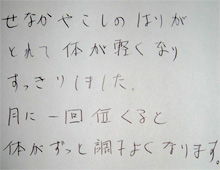 せなかやこしのはりが
とれて体が軽くなり
すっきりしました.
月に一回位くると
体がずっと調子よくなります。